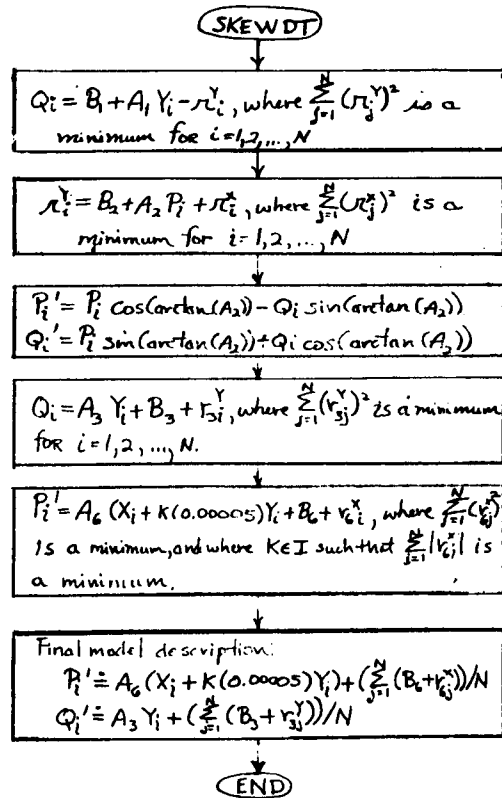 SKEWDT
Qi = B1 + A1 Yi - r_i^Y, where Σ_{j=1}^{N} (r_j^Y)^2 is a
minimum for i=1,2,...,N
r_i^Y = B2 + A2 Pi + r_i^x, where Σ_{j=1}^{N} (r_j^x)^2 is a
minimum for i=1,2,...,N
Pi' = Pi cos(arctan(A2)) - Qi sin(arctan(A2))
Qi' = Pi sin(arctan(A2)) + Qi cos(arctan(A2))
Qi = A3 Yi + B3 + r_{3i}^Y, where Σ_{j=1}^{N} (r_{3j}^Y)^2 is a minimum
FOR i=1,2,...,N.
Pi' = A6 (Xi + K(0.00005)Yi + B6 + r_{6i}^x, where Σ_{j=1}^{N} (r_{6j}^x)^2
is a minimum, and where K∈I such that Σ_{j=1}^{N} |r_{6j}^x| is
a minimum.
Final model description:
Pi' ≐ A6 (Xi + K(0.00005)Yi) + (Σ_{j=1}^{N} (B6 + r_{6j}^x))/N
Qi' ≐ A3 Yi + (Σ_{j=1}^{N} (B3 + r_{3j}^Y))/N
END